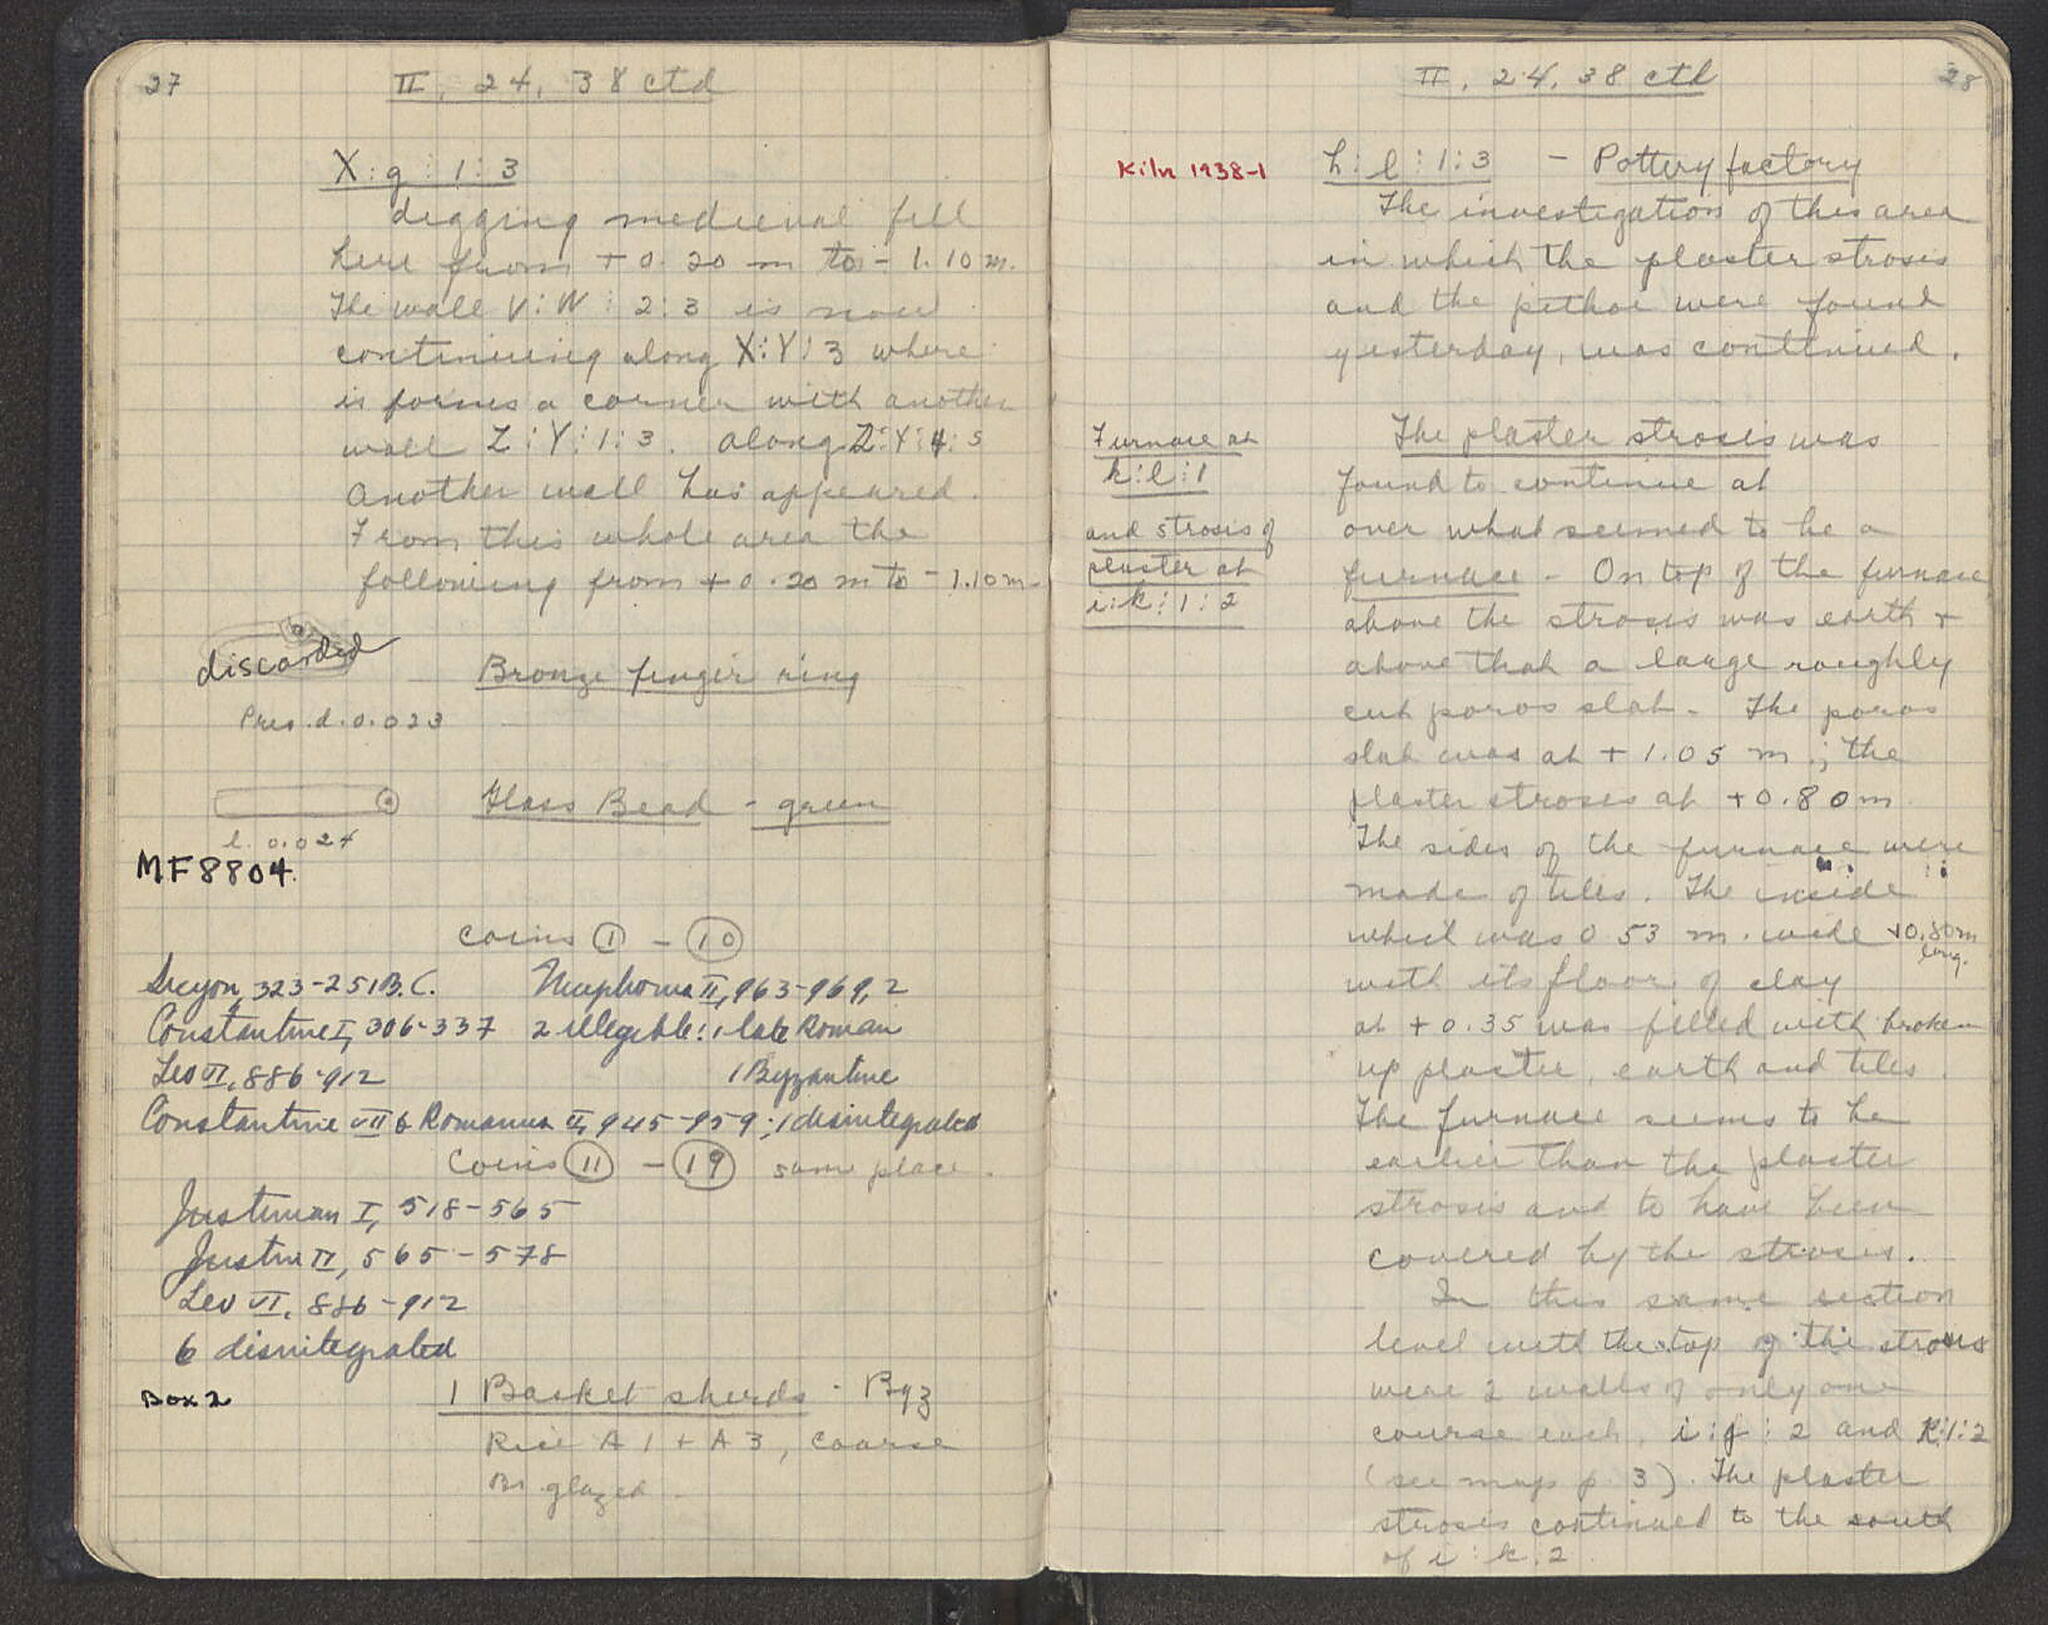 27
II, 24, 38 ctd
X:g:1:3
digging medieval fill
here from + 0.20 m to - 1.10 m.
The wall V:W:2:3 is now
continuing along X:Y:3 where
is forms a corner with another
wall Z:Y:1:3. Along Z:Y:4:5
another wall has appeared.
From this whole area the
following from + 0.20 m to - 1.10 m.
discarded
Bronze finger ring
Pres. d. 0.023
Glass Bead - green
l. 0.024
MF 8804.
coins 1 - 10
Sicyon, 323-251 B.C. Nicephorus II, 963-969, 2
Constantine I, 306-337 2 illegible: 1 late Roman
Leo VI, 886-912 1 Byzantine
Constantine VII & Romanus II, 945-959; 1 disintegrated
Coins 11 - 19 same place.
Justinian I, 518-565
Justin II, 565-578
Leo VI, 886-912
6 disintegrated
Box 2
1 Basket sherds - Byz
Rice A 1 + A 3, coarse
Br glazed.
28
II, 24, 38 ctd
Kiln 1938-1
h:l:1:3 - Pottery factory
The investigation of this area
in which the plaster strosis
and the pithoi were found
yesterday, was continued.
Furnace at
k:l:1
and strosis of
plaster at
i:k:1:2
The plaster strosis was
found to continue at
over what seemed to be a
furnace - On top of the furnace
above the strosis was earth +
above that a large roughly
cut poros slab - The poros
slab was at + 1.05 m; the
plaster strosis at +0.80 m.
The sides of the furnace were
made of tiles. The inside
which was 0.53 m. wide +0.80m
long.
with its floor of clay
at + 0.35 was filled with broken
up plaster, earth and tiles.
The furnace seems to be
earlier than the plaster
strosis and to have been
covered by the strosis.
In this same section
level with the top of the strosis
were 2 walls of only one
course each, i:j:2 and k:1:2
(see map p. 3). The plaster
strosis continued to the south
of i:k.2